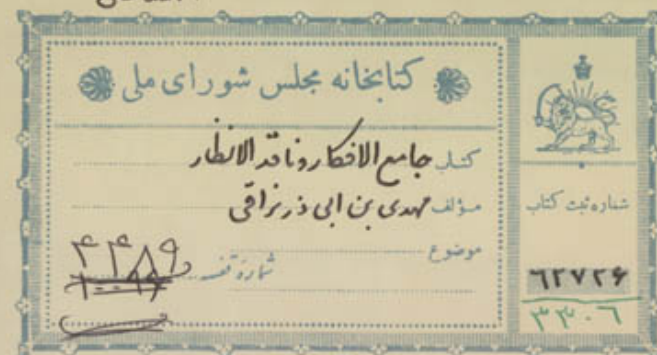 کتابخانه مجلس شورای ملی
کتاب جامع الافکار و ناقد الانظار
مؤلف مهدی بن ابی ذر نراقی
موضوع
شماره قفسه ۴۴۸۹
شماره ثبت کتاب
۶۲۷۲۶
۳۳۰۶